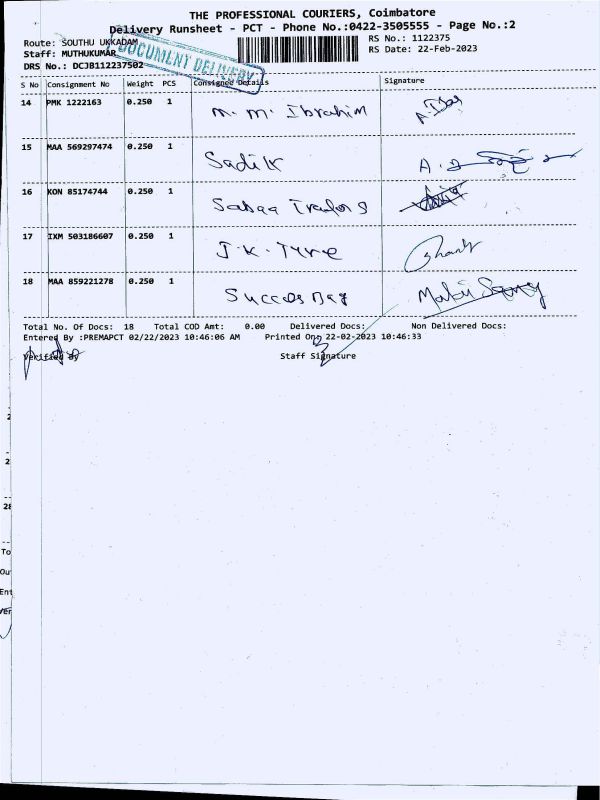 THE PROFESSIONAL COURIERS, Coimbatore
Delivery Runsheet - PCT - Phone No.:0422-3505555 - Page No.:2
Route: SOUTHU UKKADAM
RS No.: 1122375
Staff: MUTHUKUMAR
RS Date: 22-Feb-2023
DRS No.: DCJB112237502
DOCUMENT DELIVERY
S No Consignment No Weight PCS Consignee Details Signature
14 PMK 1222163 0.250 1 M. M. Ibrahim
15 MAA 569297474 0.250 1 Sadik
16 KON 85174744 0.250 1 Sabaa Traders
17 IXM 503186607 0.250 1 J.K. Tyre
18 MAA 859221278 0.250 1
Total No. Of Docs: 18 Total COD Amt: 0.00 Delivered Docs: Non Delivered Docs:
Entered By :PREMAPCT 02/22/2023 10:46:06 AM Printed On: 22-02-2023 10:46:33
Verified By Staff Signature
2
2
28
To
Ou
Ent
Ver